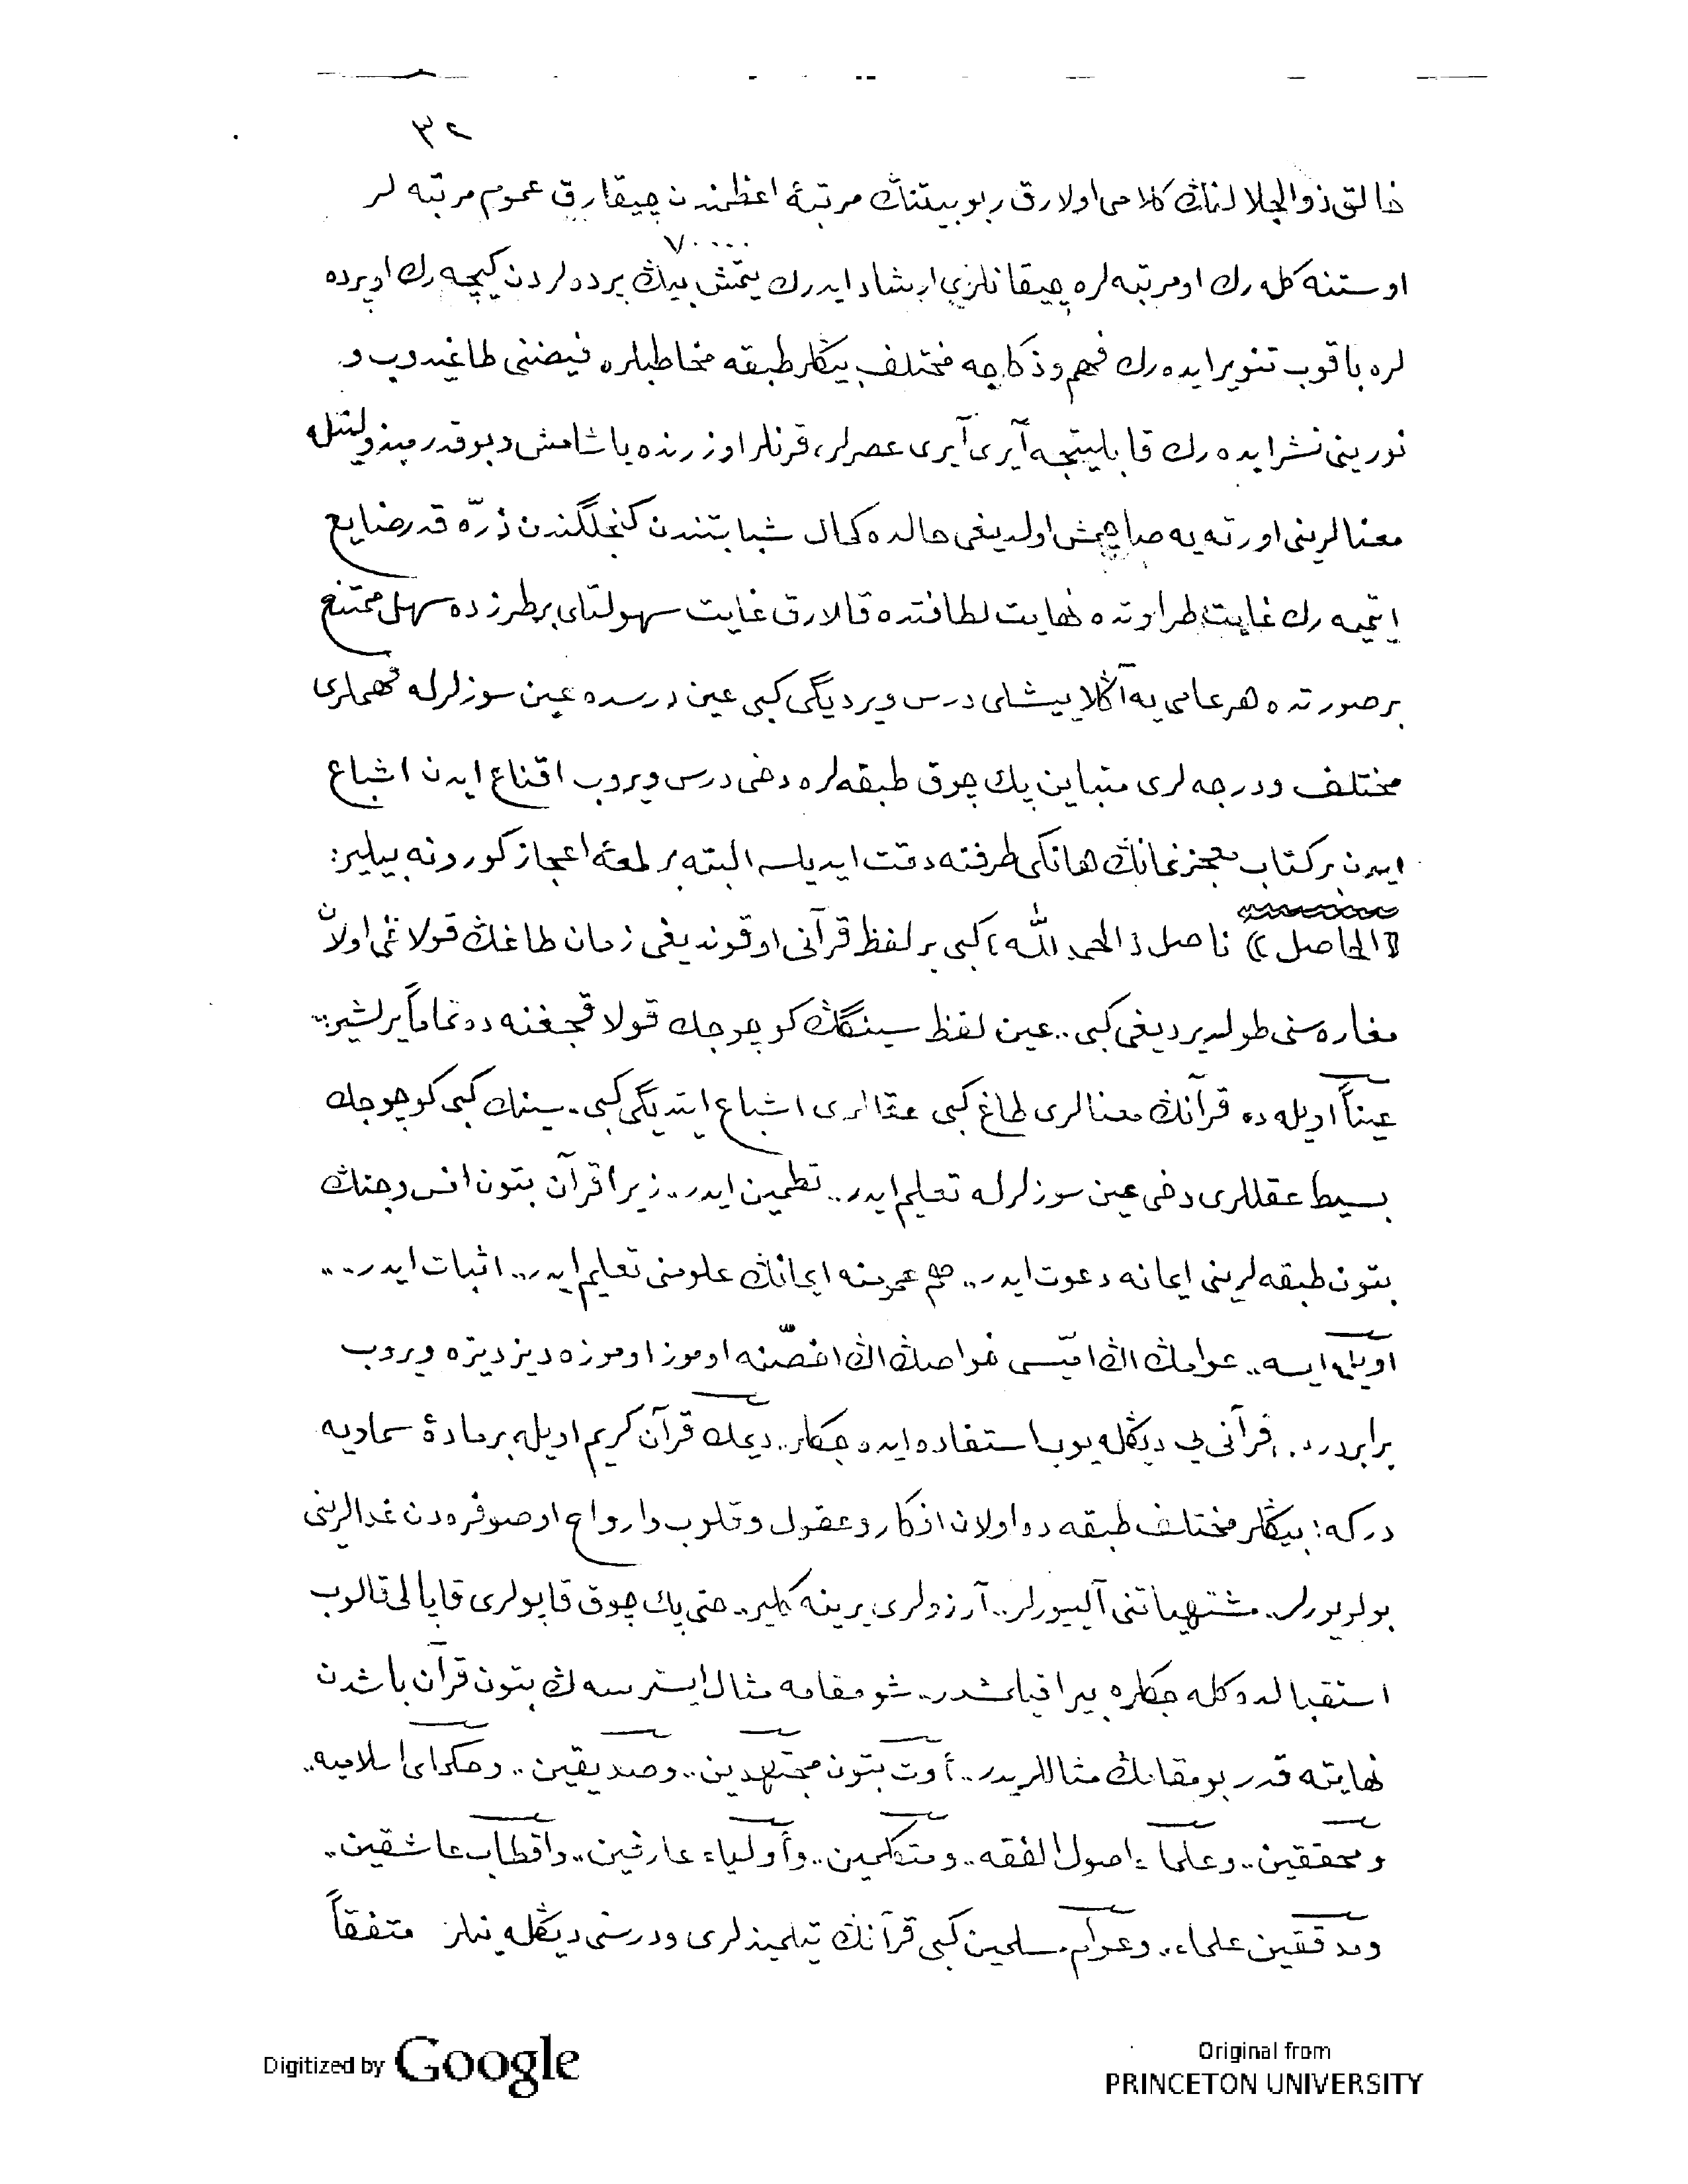 ٣٢
خالق ذوالجلالنڭ كلامى اولارق ربوبيتنڭ مرتبۀ اعظمندن چيقارق عموم مرتبه لر
٧٠٠٠٠
اوستنه كله رك او مرتبه لره چيقانلرى ارشاد ايدرك يتمش بيڭ پرده لردن كيچه رك او پرده
لره باقوب تنوير ايده رك فهم و ذكاجه مختلف بيڭلر طبقه مخاطبلره فيضنى طاغيدوب و
نورينى نشر ايده رك قابليتجه آيرى آيرى عصرلر، قرنلر اوزرنده ياشامش و بو قدر مبذوليتله
معنالرينى اورته يه صاچمش اولديغى حالده كمال شبابتندن كنجلگندن ذرّه قدر ضايع
ايتميه رك غايت طراوتده نهايت لطافتده قالارق غايت سهولتلى بر طرزده سهل ممتنع
بر صورتده هر عامى يه آڭلاييشلى درس ويرديگى كبى عين درسده عين سوزلرله فهملرى
مختلف و درجه لرى متباين پك چوق طبقه لره دخى درس ويروب اقناع ايدن اشباع
ايدن بر كتاب معجزنمانڭ هانكى طرفنه دقت ايديلسه البته بر لمعۀ اعجاز كورونه بيلير:
﴿الحاصل﴾ ناصل ﴿الحمد لله﴾ كبى بر لفظ قرآنى اوقونديغى زمان طاغڭ قولاغى اولان
مغاره سنى طولديرديغى كبى.. عين لفظ سينگڭ كوچوجك قولاقجغنه ده تماماً يرلشير..
عيناً اويله ده قرآنڭ معنالرى طاغ كبى عقللرى اشباع ايتديگى كبى.. سينك كبى كوچوجك
بسيط عقللرى دخى عين سوزلرله تعليم ايدر.. تطمين ايدر.. زيرا قرآن بتون انس و جنڭ
بتون طبقه لرينى ايمانه دعوت ايدر.. هم عمومنه ايمانڭ علومنى تعليم ايدر.. اثبات ايدر..
اويله ايسه.. عوامڭ اڭ اميّسى خواصڭ اڭ اخصّنه اوموز اوموزه ديز ديزه ويروب
برابر درس قرآنى يى ديڭله يوب استفاده ايده جكلر.. ديمك قرآن كريم اويله بر مادۀ سماويه
در كه: بيڭلر مختلف طبقه ده اولان افكار و عقول و قلوب و ارواح او صوفره دن غدالرينى
بولويورلر.. مشتهياتنى آلييورلر.. آرزولرى يرينه كلير.. حتى پك چوق قاپولرى قاپالى قالوب
استقبالده كله جكلره بيراقيلمشدر.. شو مقامه مثال ايسترسه ڭ بتون قرآن باشدن
نهايته قدر بو مقامڭ مثاللريدر.. أوت بتون مجتهدين.. وصديقين.. وحكماى اسلاميه..
ومحققين.. وعلماء اصول الفقه.. ومتكلمين.. وأولياء عارفين.. واقطاب عاشقين..
ومدققين علماء.. وعوام مسلمين كبى قرآنڭ تيلميذلرى ودرسنى ديڭله ينلر متفقاً
Digitized by Google
Original from
PRINCETON UNIVERSITY